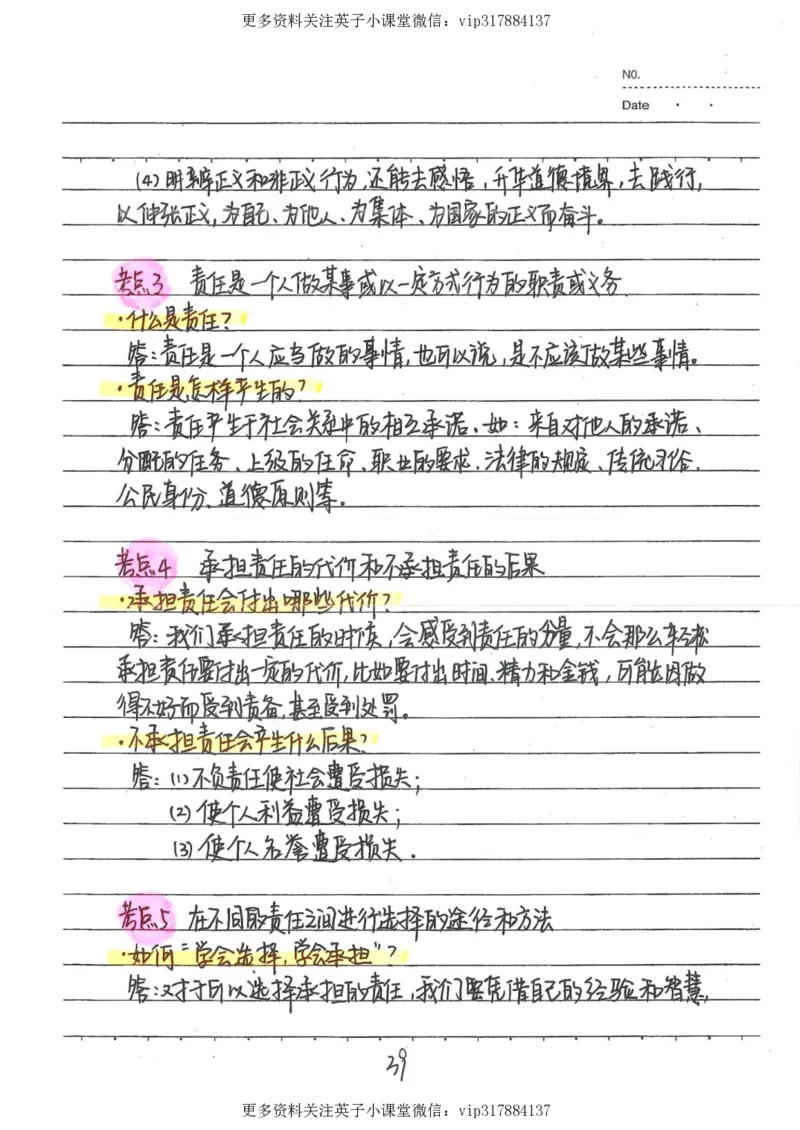 更多资料关注英子小课堂微信：vip317884137
NO.
Date
(4)明辨正义和非正义行为，还能去感悟，升华道德境界，去践行，
以伸张正义，为自己、为他人、为集体、为国家的正义而奋斗。
考点3 责任是一个人做某事或以一定方式行为的职责或义务
·什么是责任？
答：责任是一个人应当做的事情，也可以说，是不应该做某些事情。
·责任是怎样产生的？
答：责任产生于社会关系中的相互承诺。如：来自对他人的承诺、
分配的任务、上级的任命、职业的要求、法律的规定、传统习俗、
公民身份、道德原则等。
考点4 承担责任的代价和不承担责任的后果
·承担责任会付出哪些代价？
答：我们承担责任的时候，会感受到责任的分量，不会那么轻松
承担责任要付出一定的代价，比如要付出时间、精力和金钱，可能因做
得不好而受到责备，甚至受到处罚。
·不承担责任会产生什么后果？
答：(1)不负责任使社会遭受损失；
(2)使个人利益遭受损失；
(3)使个人名誉遭受损失.
考点5 在不同的责任之间进行选择的途径和方法
·如何“学会选择，学会承担”？
答：对于可以选择承担的责任，我们要凭借自己的经验和智慧，
39
更多资料关注英子小课堂微信：vip317884137